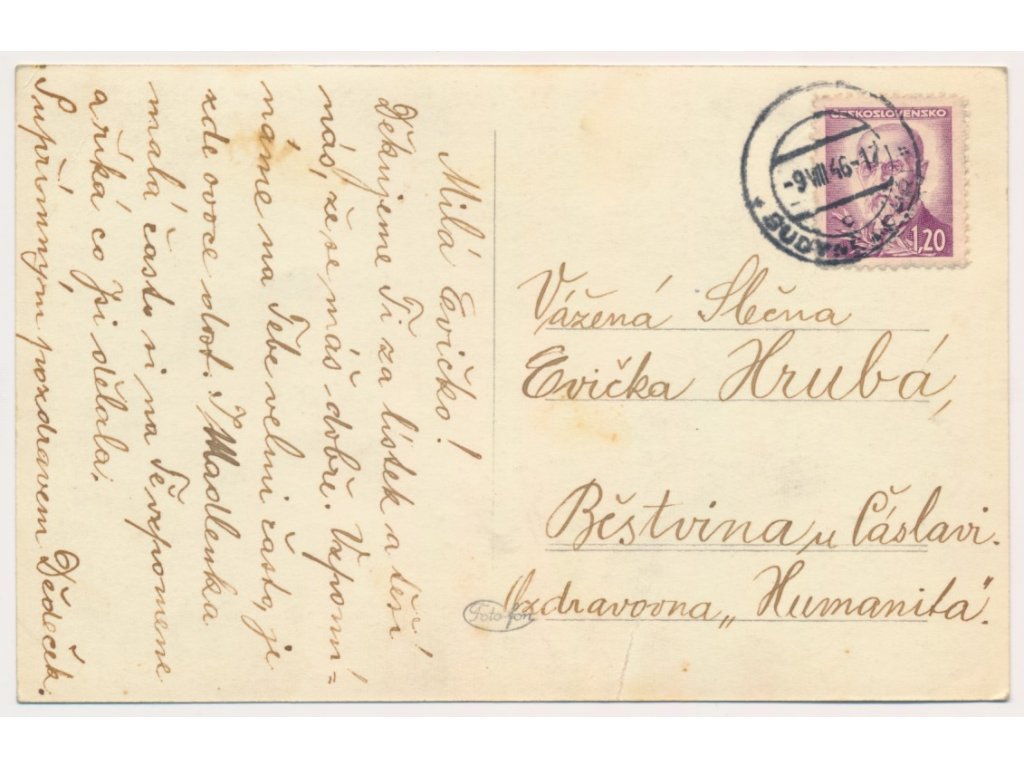 Milá Evičko!
Děkujeme Ti za lístek a těší
nás, že se máš dobře. Vzpomí=
náme na Tebe velmi často, je
zde ovoce dost. I Madlenka
malá často si na Tě vzpomene
a říká co jsi dělala.
S upřímným pozdravem Dědeček.
ČESKOSLOVENSKO
1,20
-9.VIII 46-17
Vážená Slečna
Evička Hrubá,
Běstvina u Čáslavi.
Ozdravovna „Humanita".
Fotofon